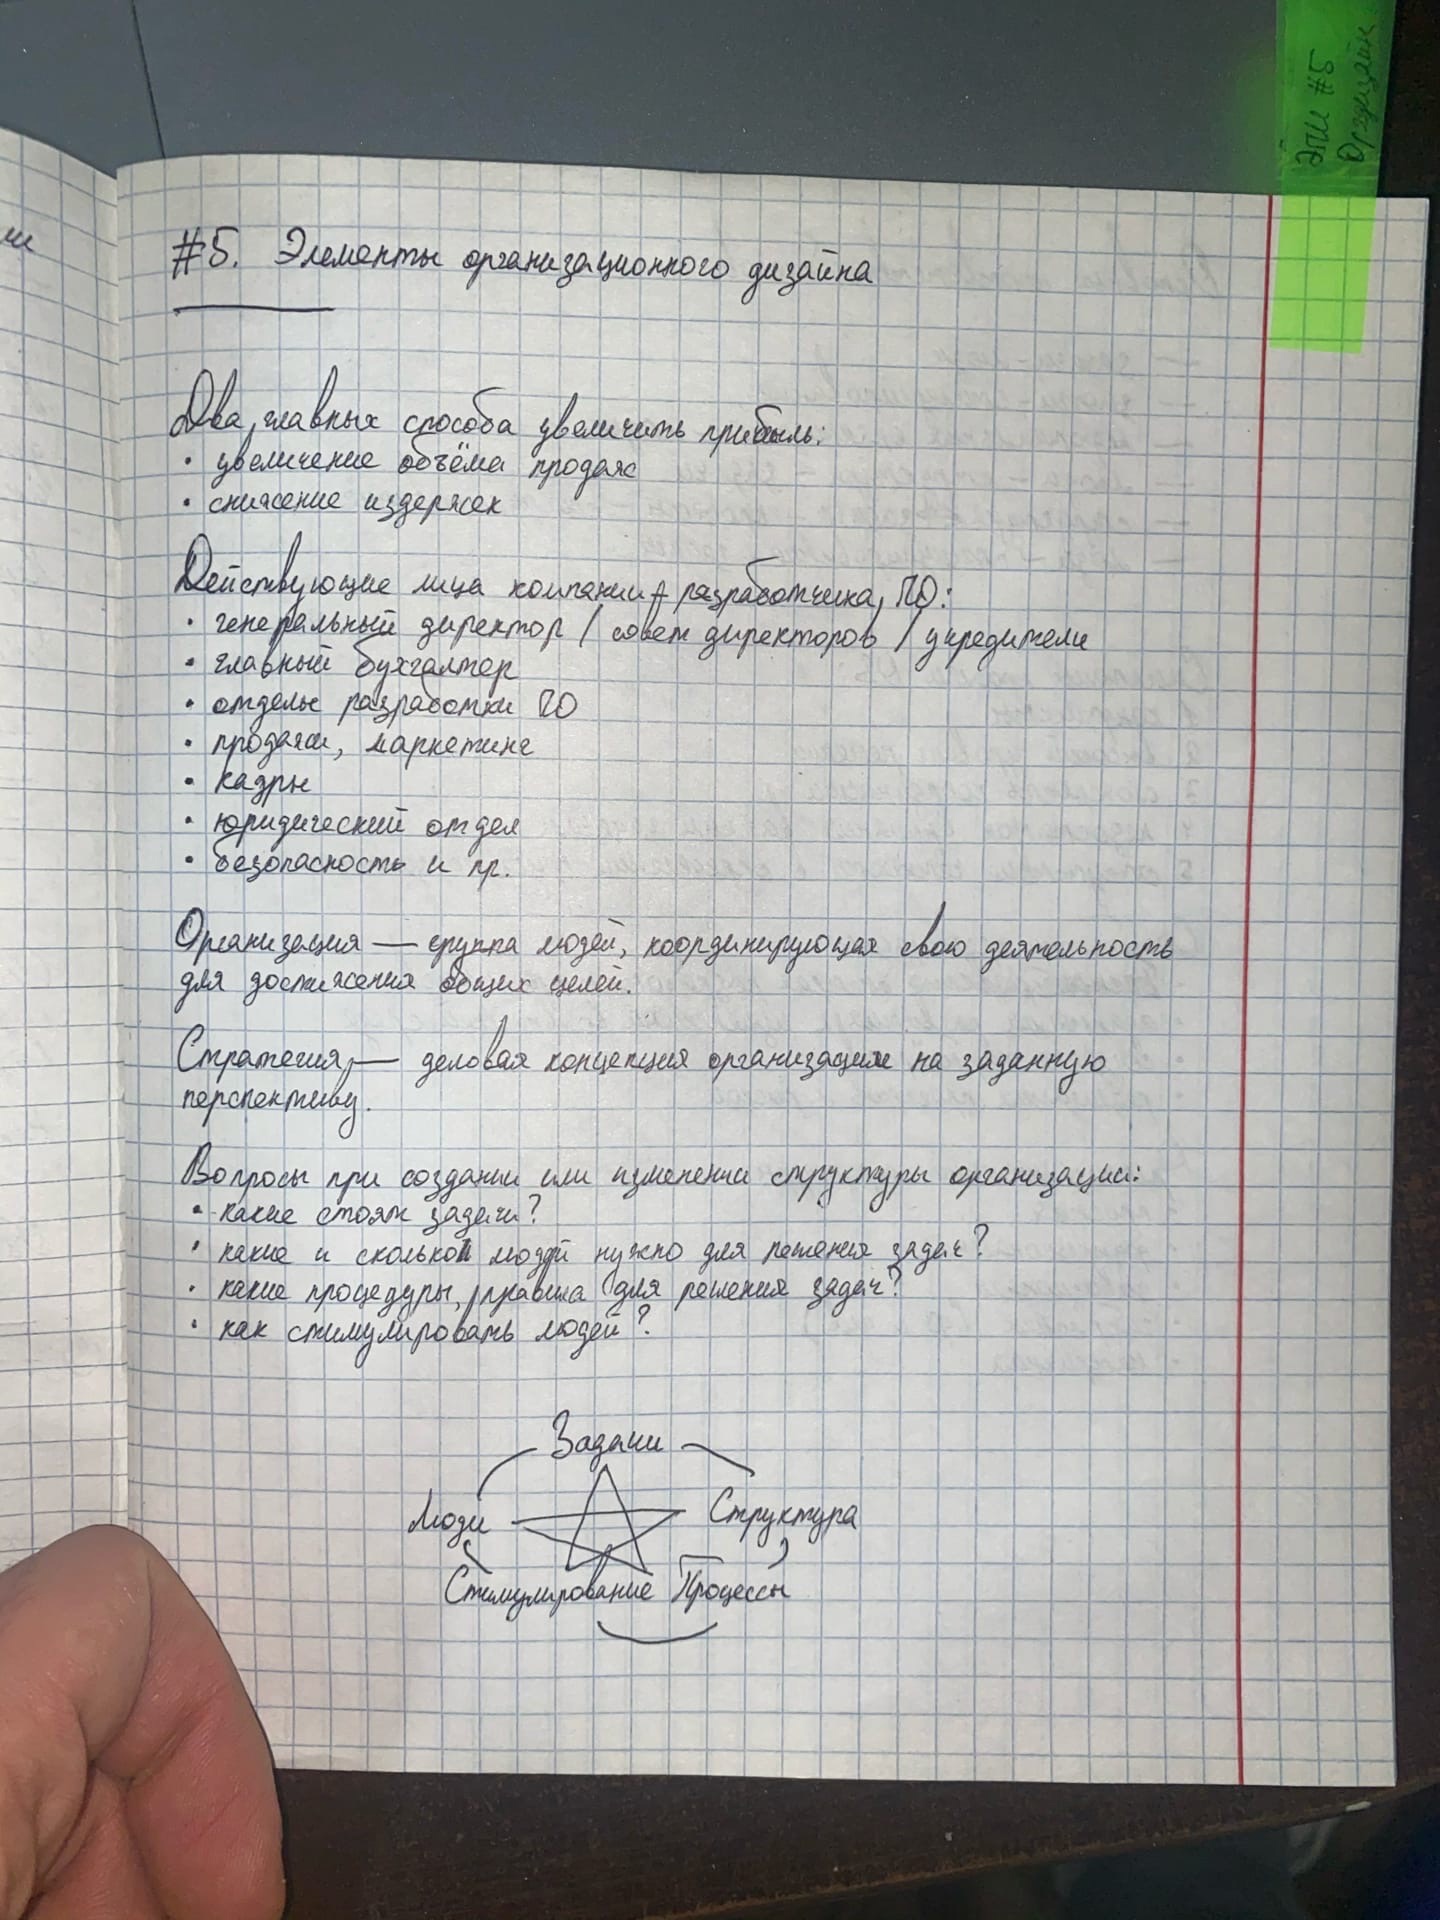 ЭПИ #5
Оргдизайн
#5. Элементы организационного дизайна
Два главных способа увеличить прибыль:
• увеличение объёма продаж
• снижение издержек
Действующие лица компании - разработчика ПО:
• генеральный директор / совет директоров / учредители
• главный бухгалтер
• отделы разработки ПО
• продажи, маркетинг
• кадры
• юридический отдел
• безопасность и пр.
Организация — группа людей, координирующая свою деятельность
для достижения общих целей.
Стратегия — деловая концепция организации на заданную
перспективу.
Вопросы при создании или изменении структуры организации:
• какие стоят задачи?
• какие и сколько людей нужно для решения задач?
• какие процедуры, правила для решения задач?
• как стимулировать людей?
Задачи
Люди Структура
Стимулирование Процессы